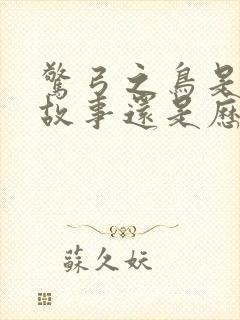 驚弓之鳥是
故事還是歷
蘇久妖